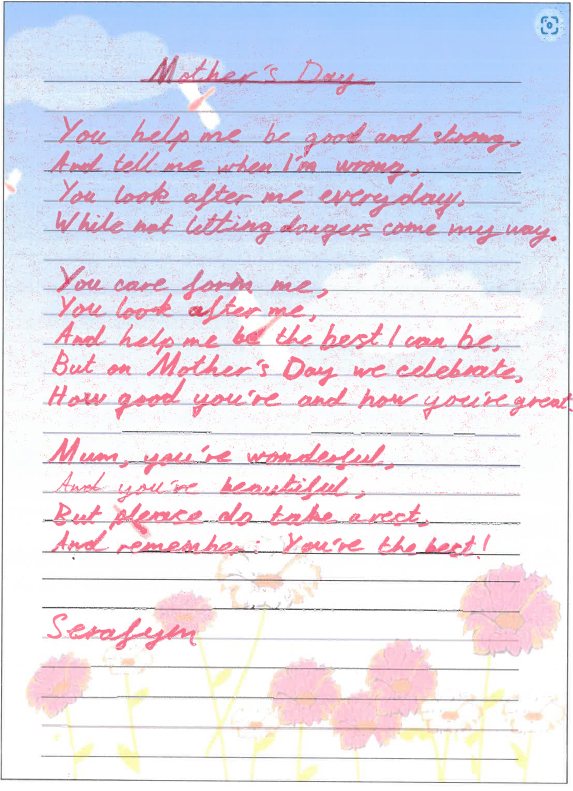 Mother's Day
You help me be good and strong,
And tell me when I'm wrong,
You look after me everyday,
While not letting dangers come my way.
You care form me,
You look after me,
And help me be the best I can be,
But on Mother's Day we celebrate,
How good you're and how you're great.
Mum, you're wonderful,
And you're beautiful,
But please do take a rest,
And remember: You're the best!
Serafym